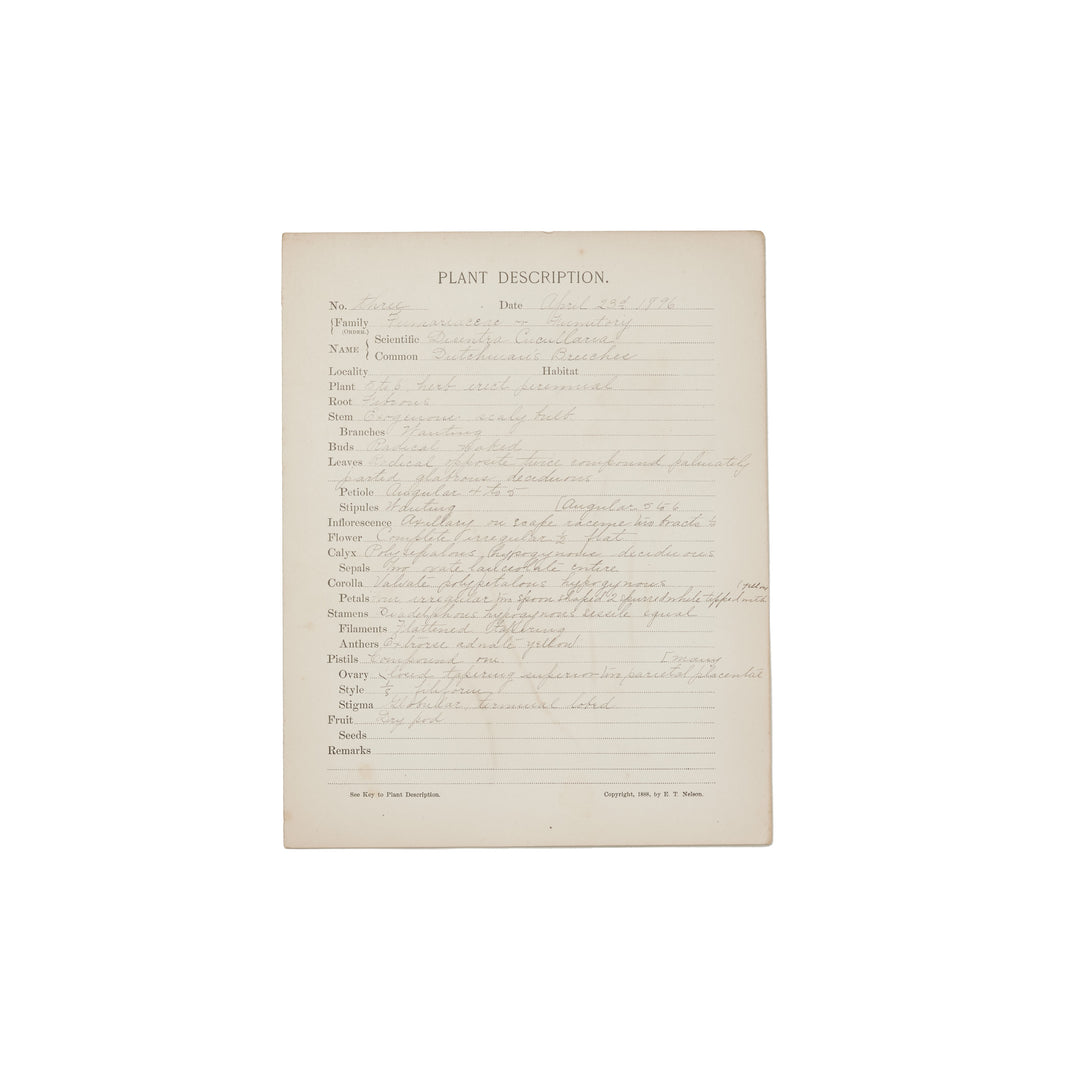 PLANT DESCRIPTION.
No. three Date April 23d 1896
Family Fumariaceae or Fumitory
(ORDER.)
NAME
Scientific Dicentra Cucullaria
Common Dutchman's Breeches
Locality Habitat
Plant 5 to 6 herb erect perennial
Root Fibrous
Stem scaly bulb
Branches Wanting
Buds Radical naked
Leaves Radical opposite twice compound palmately
parted glabrous deciduous
Petiole Angular 4 to 5
Stipules Wanting [Angular 5 to 6
Inflorescence Axillary on scape raceme two bracts
Flower Complete irregular ½ flat
Calyx Polysepalous hypogynous deciduous
Sepals Two ovate lanceolate entire
Corolla Valvate polypetalous hypogynous (yellow
Petals four irregular two spoon shaped 2 spurred white tipped with
Stamens Diadelphous hypogynous sessile equal
Filaments Flattened tapering
Anthers Extrorse adnate yellow
Pistils Compound one [many
Ovary Closed tapering superior two parietal placentae
Style filiform
Stigma Globular, terminal lobed
Fruit Dry pod
Seeds
Remarks
See Key to Plant Description. Copyright, 1888, by E. T. Nelson.